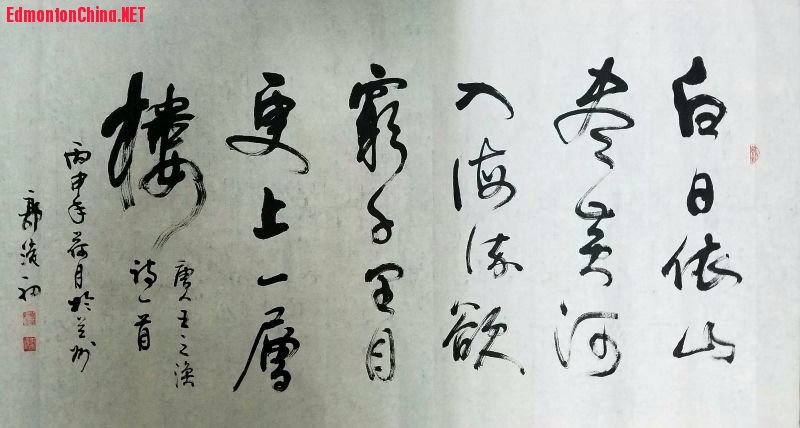 EdmontonChina.NET
白日依山
盡黄河
入海流欲
窮千里目
更上一層
樓
唐王之渙
詩一首
丙申年荷月於兰州
郭